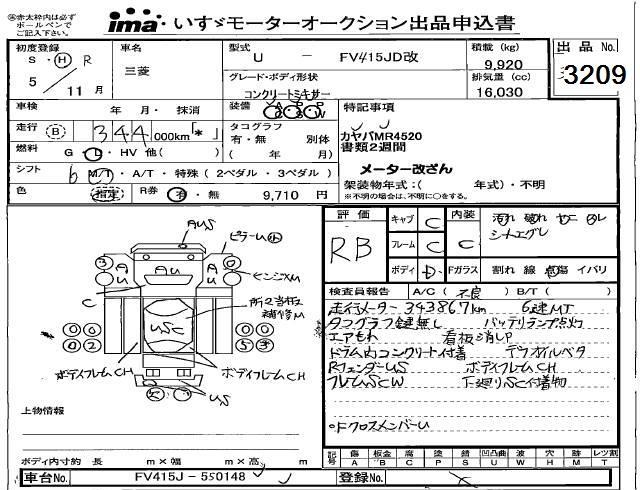 ※赤太枠内は必ず
ボールペンで
ご記入下さい。
ima・いすゞモーターオークション出品申込書
初度登録
S・H R
5 / 11 月
車名
三菱
型式
U － FV415JD改
積載 (kg)
9,920
出品 No.
3209
グレード・ボディ形状
コンクリートミキサー
排気量 (cc)
16,030
車検 年・月・抹消
装備
特記事項
走行 (B) 344,000km「*」
タコグラフ
有・無 別体
( 年 月)
カヤバMR4520
書類2週間
燃料 G・L・HV 他( )
メーター改ざん
シフト 6 M/T・A/T・特殊(2ペダル・3ペダル)
架装物年式:( 年式)・不明
※不明の場合は、不明に○をする。
色 (指定) R券 有・無 9,710 円
評価
RB
キャブ C
内装 C
フレーム C
ボディ D
Fガラス 割れ 線 点傷 イバリ
検査員報告 A/C(不良) B/T( )
走行メーター 343867km 6速MT
タコグラフ鍵無し バッテリランプ点灯
エアもれ 看板消しP
ドラム内コンクリート付着
RフェンダーUS ボディフレームCH
フレームSCW 下廻りSC付着物
FクロスメンバーU
AUS
AU
AU
AU
C
USC
補修M
ボディフレームCH
ボディフレームCH
US
上物情報
ボディ内寸約 長 m×幅 m×高 m
記号
傷 A
板金 B
腐 C
塗 P
錆 S
凹凸曲 U
波 W
穴 H
跡 M
レツ割 T
車台No. FV415J－550148
登録No.